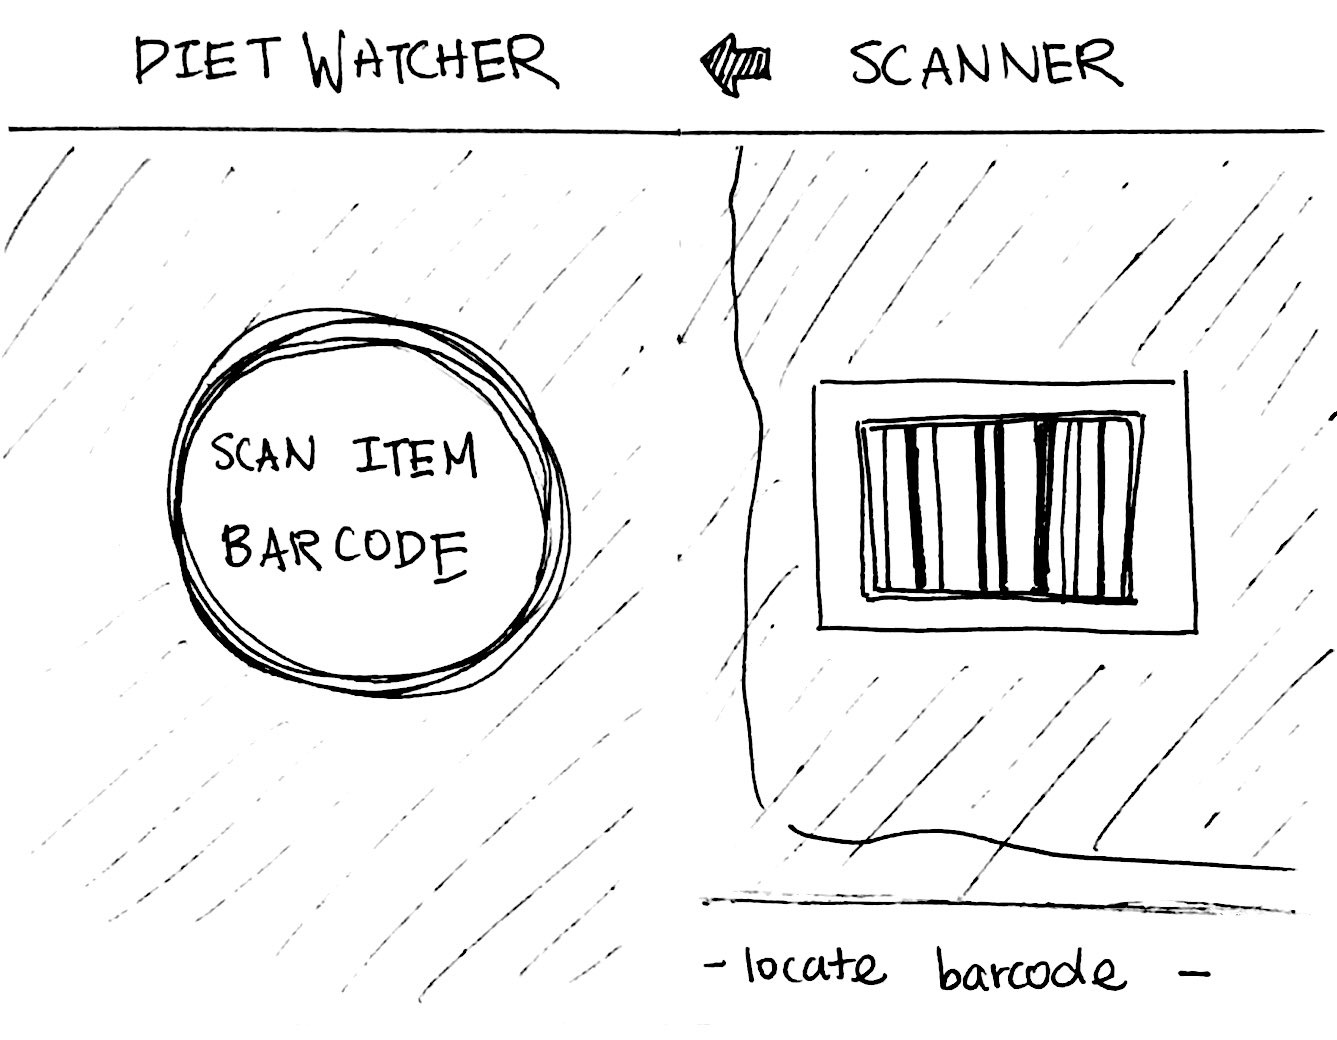 DIET WATCHER
SCAN ITEM
BARCODE
SCANNER
- locate barcode -